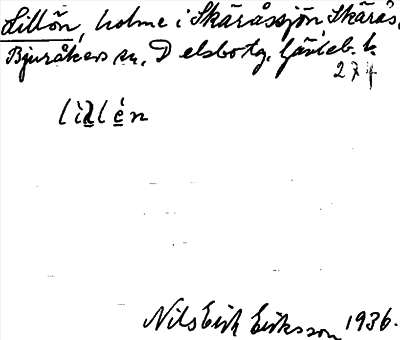 Lillön, holme i Skäråssjön Skärås,
Bjuråkers sn, Delsbo tg. Gävleb. l.
27
lillén
Nils Erik Eriksson 1936.